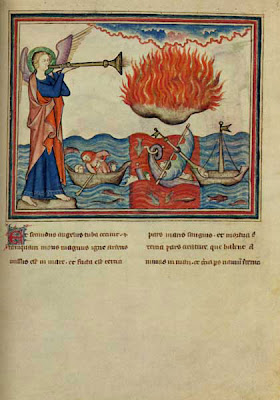 Et secundus angelus tuba cecinit. et
tamquam mons magnus igne ardens
missus est in mare. et facta est tercia
pars maris sanguis. et mortua ē
tercia pars creature que habent a
nimas in mari. et pars nauium